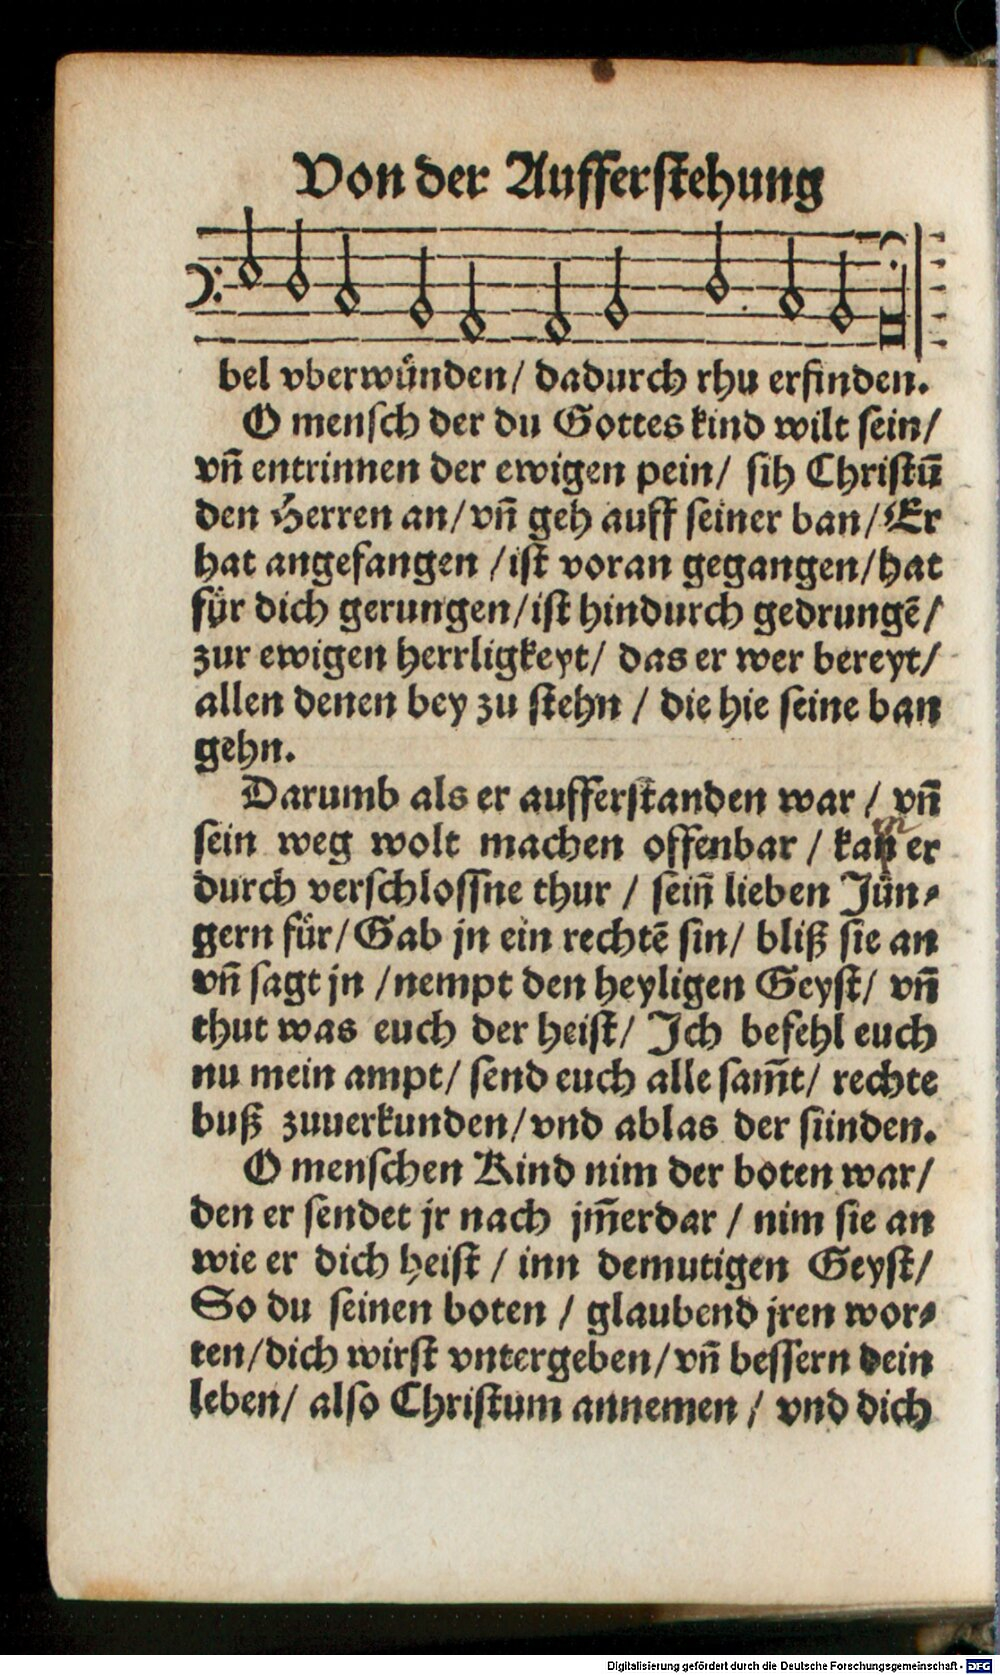 Von der Aufferstehung
bel vberwuͤnden/ dadurch rhu erfinden.
O mensch der du Gottes kind wilt sein/
vñ entrinnen der ewigen pein/ sih Christū
den Herren an/ vñ geh auff seiner ban/ Er
hat angefangen /ist voran gegangen/ hat
fuͤr dich gerungen/ ist hindurch gedrungē/
zur ewigen herrligkeyt/ das er wer bereyt/
allen denen bey zu stehn / die hie seine ban
gehn.
Darumb als er aufferstanden war / vñ
sein weg wolt machen offenbar / kam er
durch verschlossne thur / sein̄ lieben Juͤn-
gern fuͤr/ Gab jn ein rechtē sin/ bließ sie an
vñ sagt jn /nempt den heyligen Geyst/ vñ
thut was euch der heist/ Ich befehl euch
nu mein ampt/ send euch alle sam̄t/ rechte
buß zuuerkunden/ vnd ablas der sünden.
O menschen Kind nim der boten war/
den er sendet jr nach jm̄erdar / nim sie an
wie er dich heist / inn demutigen Geyst/
So du seinen boten / glaubend jren wor-
ten/ dich wirst vntergeben/ vñ bessern dein
leben/ also Christum annemen / vnd dich
Digitalisierung gefördert durch die Deutsche Forschungsgemeinschaft - DFG